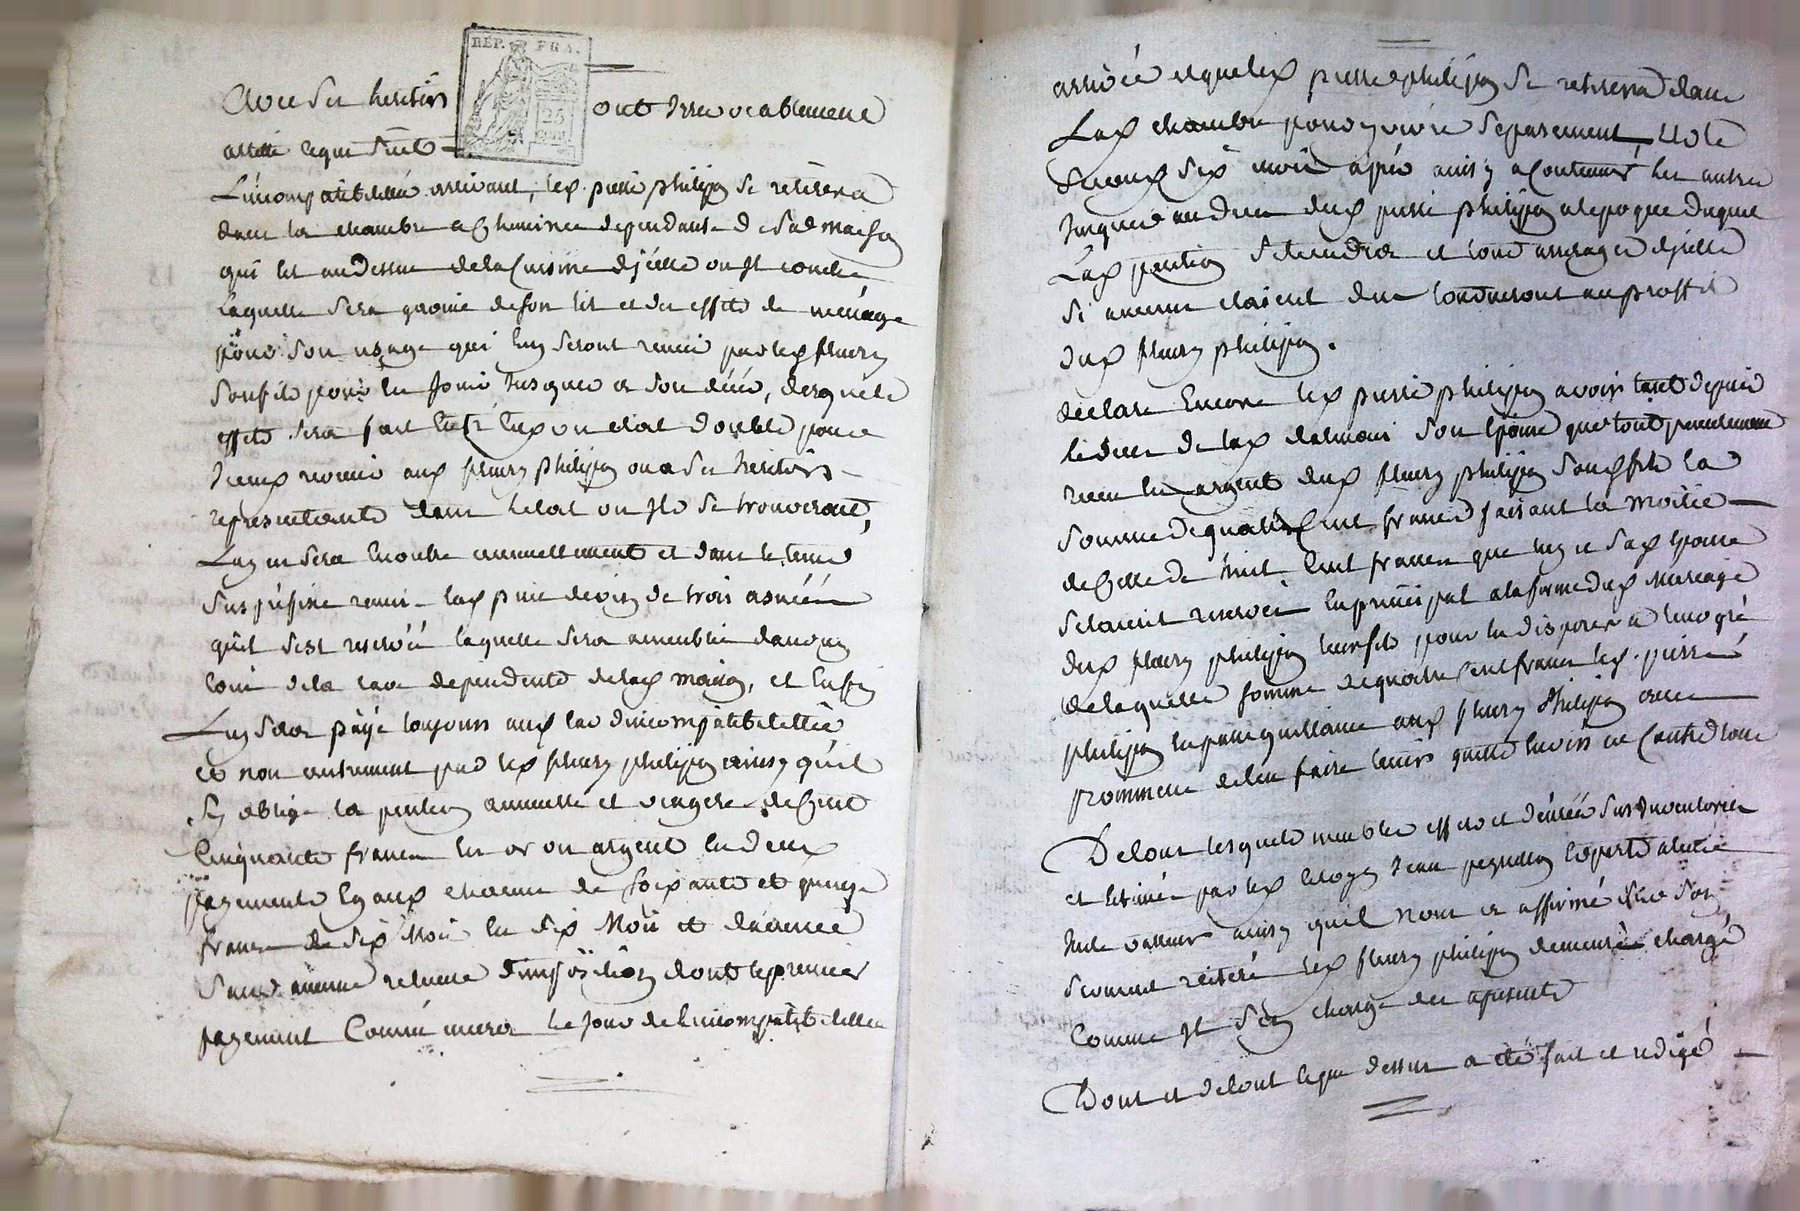 avec ses heritiers ont irrevocablement
RÉP. FRA.
25
arreté cequi suit
L'incompatibilitté arrivant, led. pierre philipon se retirera
dans la chambre a Cheminée dependante de sad. maison
qui est audessus dela Cuisine d'jcelle ou jl couche
laquelle sera garnie deson lit et des effets de menage
pour son usage qui luy seront remis par led. fleury
sonfils pour en jouir jusques a son décé, desquels
effets sera fait Etat double pour
jceux remis aud. fleury philipon ou a ses heritiers
representants dans letat ou jls se trouveront,
Luy en sera en outre annuellement et dans le tems
sus jndiqué remis lad. piece devin de trois asnées
qu'il s'est reservée laquelle sera amenblée dans un
coin dela cave dependente delad. maison, et enfin
Luy sera payé toujours aud. cas d'incompatibilittée
et non autrement par led. fleury philipon ainsy qu'il
s'y oblige la pention annuelle et viagere de Cent
Cinquante francs en or ou argent en deux
payements Egaux chacun de soixante et quinze
francs de six Mois en six Mois et d'avance
sans aucune retenue d'imposition dont le premier
payement Commencera le jour de l'incompatibilittée
arrivée et queled. pierre philipon se retirera dans
Lad. chambre pour y vivre séparement, et le
second six mois après ainsy a Continuer les autres
jusques au deces dud. pierre philipon a lepoque duquel
Lad. pention s'eteindra et tous arrerages d'jcelle
si aucuns etaient dus tourneront au proffit
dud. fleury philipon.
declare Encore led. pierre philipon avoir tant depuis
le deces de lad. dalmais son Epouse que tout presentement
recu en argent dud. fleury philipon sond. fils la
somme de quatre Cent francs faisant la moitié
de Celle de huit Cent francs que luy et sad. Epouse
setaient reservée en principal a la forme dud. Mariage
dud. fleury philipon leur fils pour en disposer a leur gré
de laquelle somme de quatre Cent francs led. pierre
philipon en passe quittance aud. fleury Philipon avec
promesse de l'en faire tenir quitte envers et Contre tous
De tous lesquels meubles effets et denrées sus Inventoriés
et Estimés par led. Citoyen Jean pegnillon expert a cette
juste valleur ainsy quil nous a affirmé avec son
serment reiteré led. fleury philipon demeure chargé
Comme jl s'en charge des a present
Dont et detout cequi dessus a eté fait et redigé